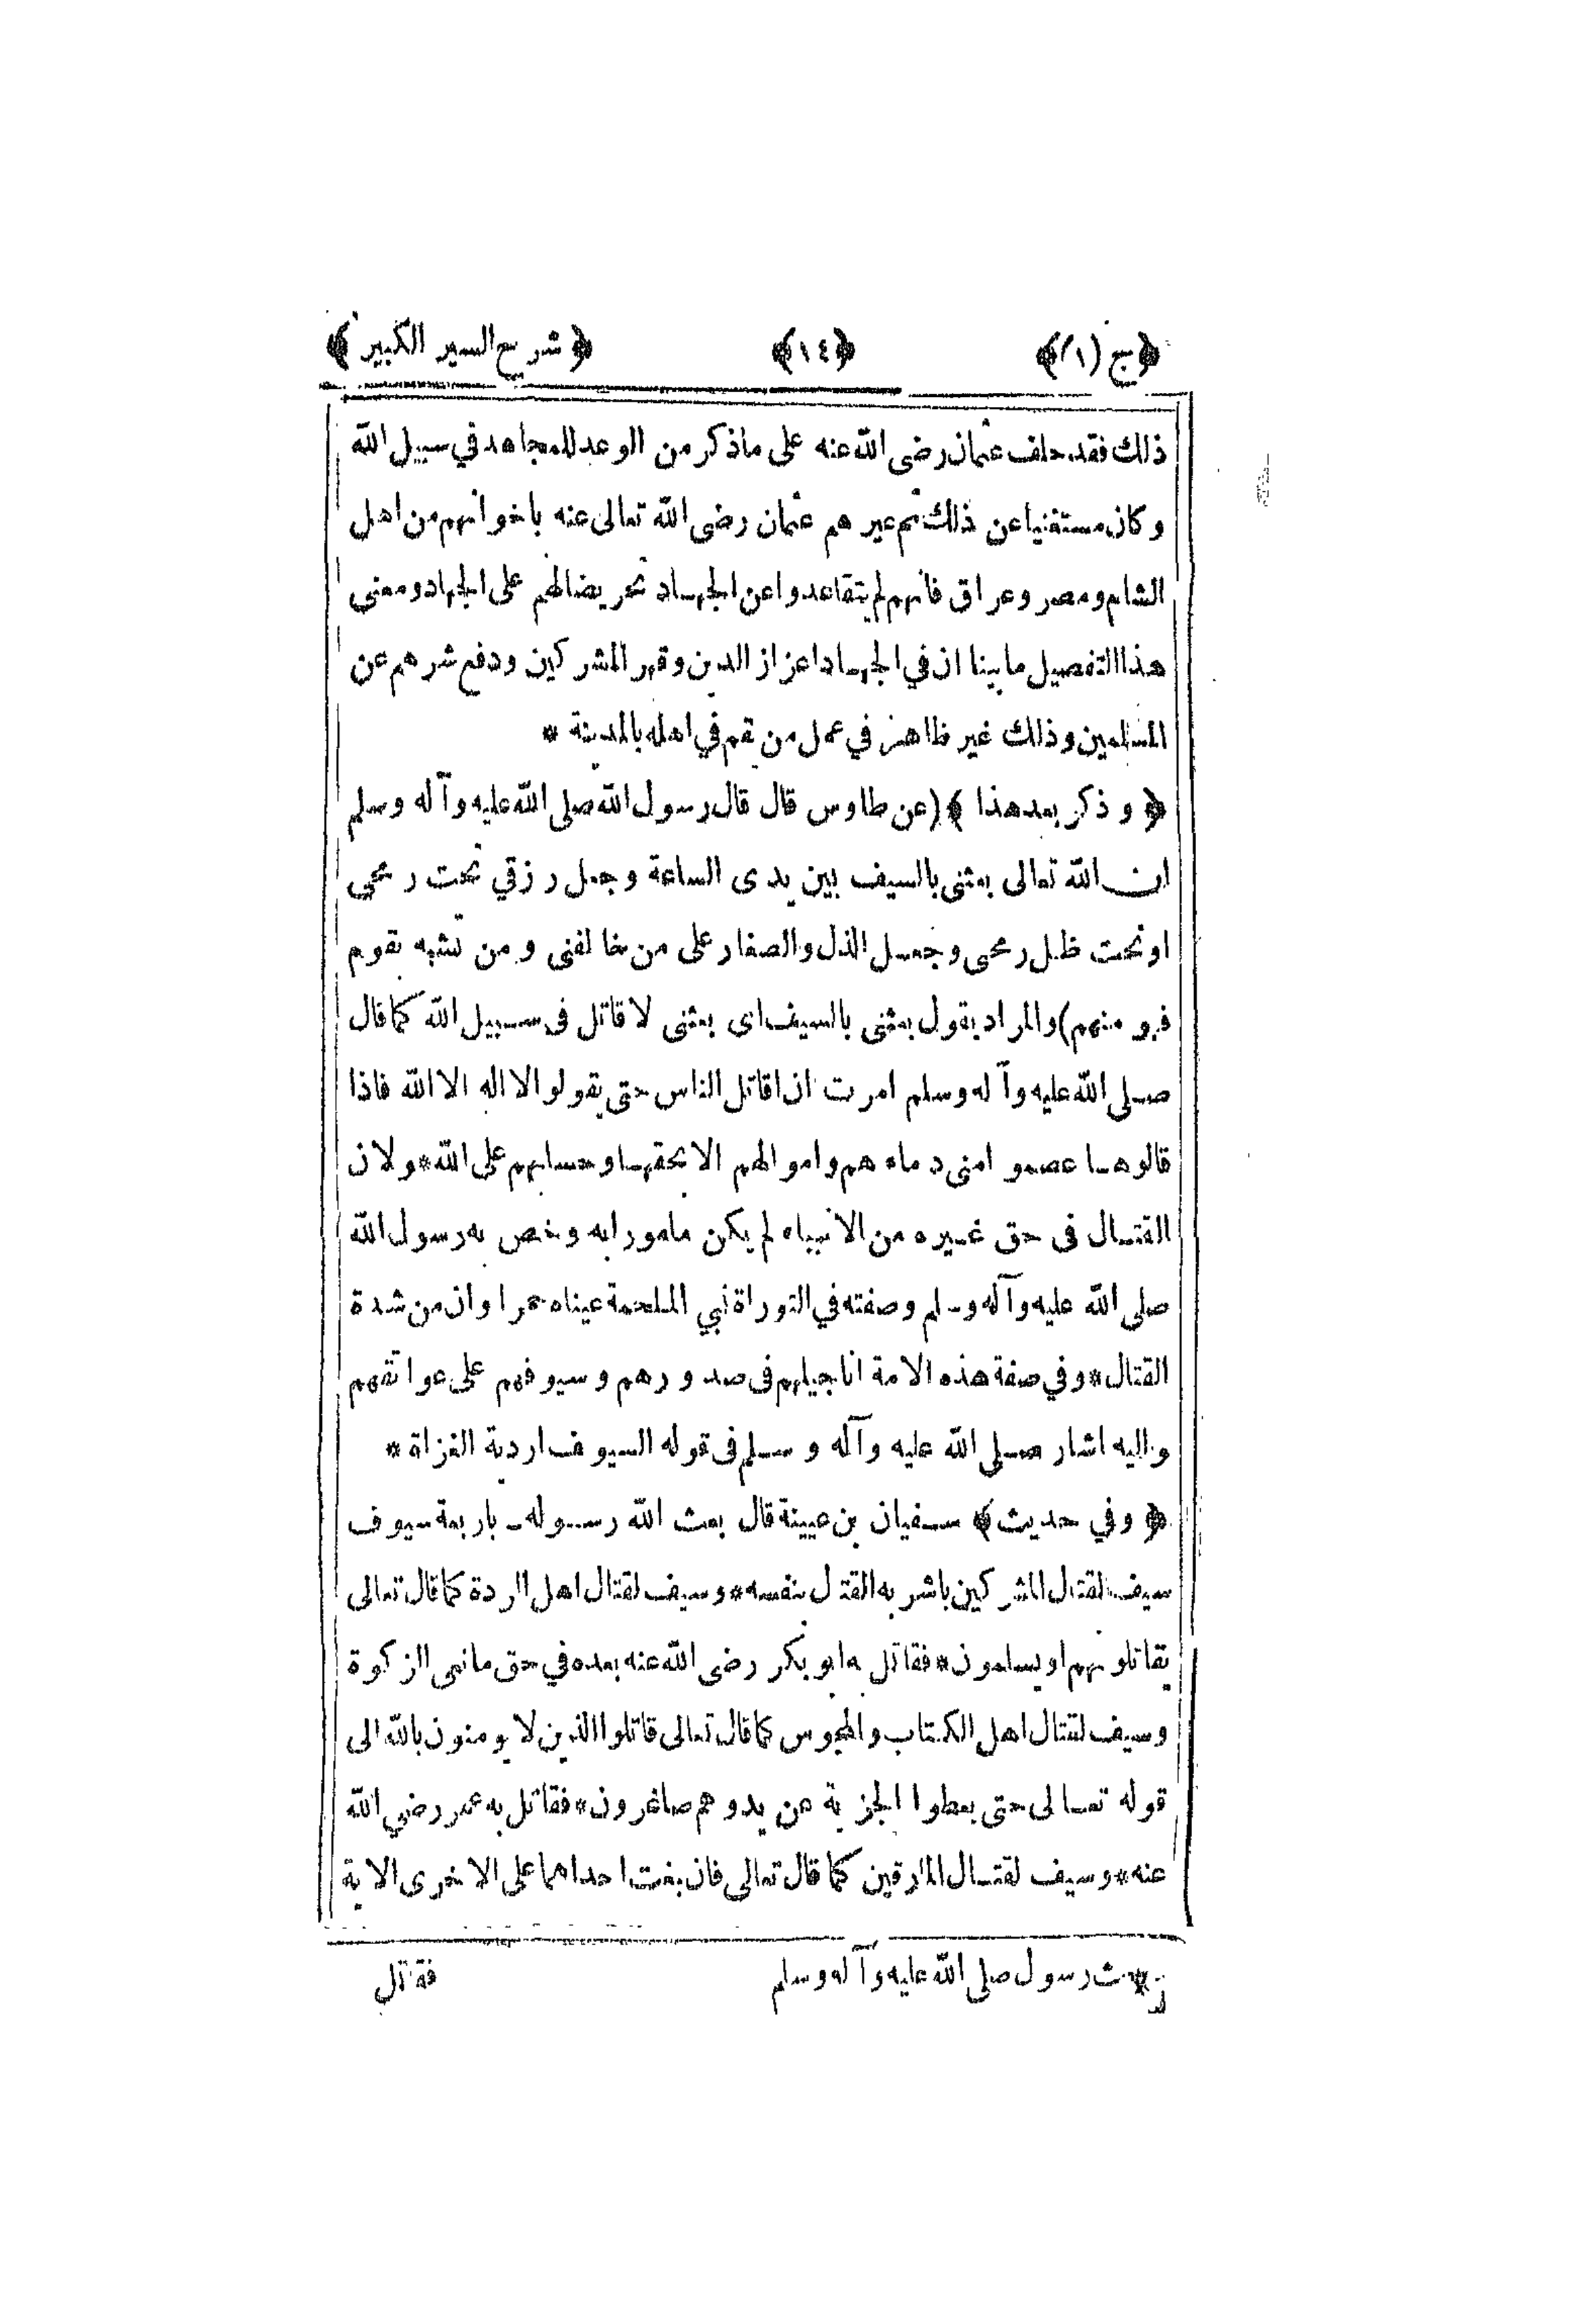 ﴿ج (١)﴾ ﴿١٤﴾ ﴿شرح السير الكبير﴾
ذلك فقد حلف عثمان رضى الله عنه على ماذكر من الوعد للمجاهد في سبيل الله
وكان مستغنيا عن ذلك ثم عيرهم عثمان رضى الله تعالى عنه باخوانهم من اهل
الشام ومصر وعراق فانهم لم يتقاعدوا عن الجهاد تحريضا لهم على الجهاد ومعنى
هذا التفصيل ما بينا ان في الجهاد اعزاز الدين وقهر المشركين ودفع شرهم عن
المسلمين وذلك غير ظاهر في عمل من يقم في اهله بالمدينة *
﴿وذكر بعد هذا﴾ (عن طاوس قال قال رسول الله صلى الله عليه وآله وسلم
ان الله تعالى بعثنى بالسيف بين يدى الساعة وجعل رزقي تحت رمحي
او تحت ظل رمحى وجعل الذل والصغار على من خالفنى ومن تشبه بقوم
فهو منهم) والمراد بقول بعثنى بالسيف اى بعثنى لاقاتل فى سبيل الله كما قال
صلى الله عليه وآله وسلم امرت ان اقاتل الناس حتى يقولوا لا اله الا الله فاذا
قالوها عصموا منى دماءهم واموالهم الا بحقها وحسابهم على الله * ولان
القتال فى حق غيره من الانبياء لم يكن مامورا به وخص به رسول الله
صلى الله عليه وآله وسلم وصفته في التوراة نبي الملحمة عيناه حمراوان من شدة
القتال * وفي صفة هذه الامة اناجيلهم فى صدورهم وسيوفهم على عواتقهم
واليه اشار صلى الله عليه وآله وسلم فى قوله السيوف اردية الغزاة *
﴿وفي حديث﴾ سفيان بن عيينة قال بعث الله رسوله باربعة سيوف
سيف لقتال المشركين باشر به القتال بنفسه * وسيف لقتال اهل الردة كما قال تعالى
يقاتلونهم او يسلمون * فقاتل به ابو بكر رضى الله عنه بعده في حق مانعى الزكوة
وسيف لقتال اهل الكتاب والمجوس كما قال تعالى قاتلوا الذين لا يومنون بالله الى
قوله تعالى حتى يعطوا الجزية عن يد وهم صاغرون * فقاتل به عمر رضي الله
عنه * وسيف لقتال المارقين كما قال تعالى فان بغت احداهما على الاخرى الاية
رسول صلى الله عليه وآله وسلم
فقاتل